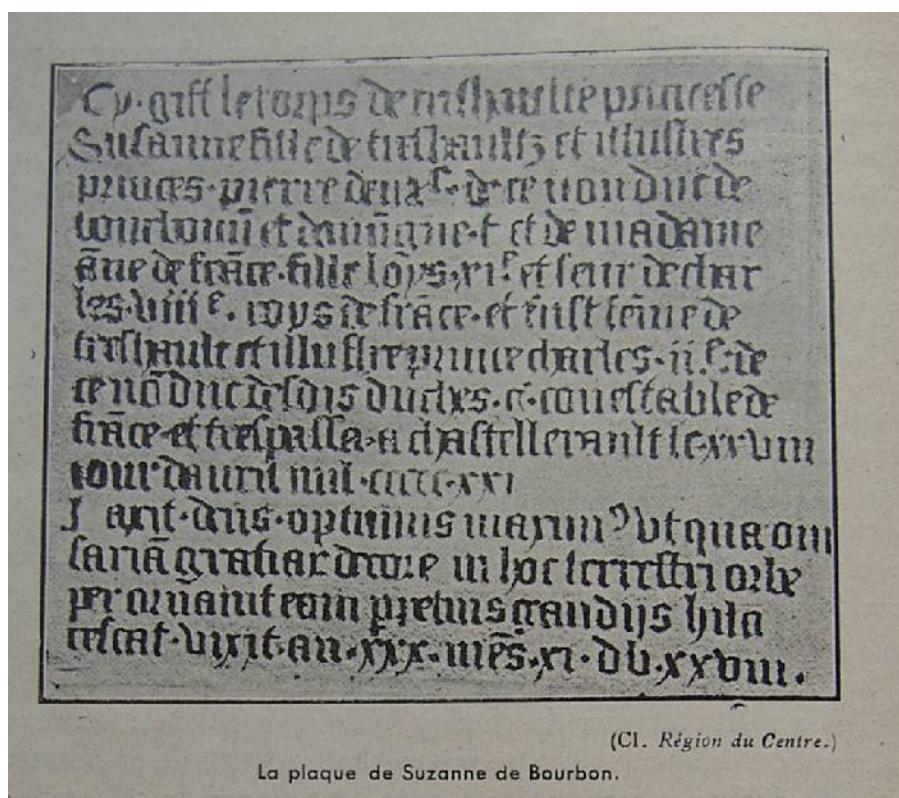 Cy·gist le corps de treshaulte princesse
Susanne fille de treshaultz et illustres
princes·pierre deuxe·de ce non duc de
bourbonñ et dauũgne·t et de madame
ãne de frãce·fille loys·xi e et seur de char
les·viii e·roys de frãce·et fust fẽme de
treshault et illustre prince charles·ii e·de
ce nõ duc desdis duches·&·conestable de
frãce·et trespassa·a chastellerault le·xxviii
iour dauril mil·cccc·xxi
Faxit·deus·optimus maxim⁹ vt qua om
fariã gratiar decore in hoc terrestri orbe
per ornauit eam gaudijs hila
rescat·vixit·an·xxx·mẽs·xi·db·xxviii.
(Cl. Région du Centre.)
La plaque de Suzanne de Bourbon.